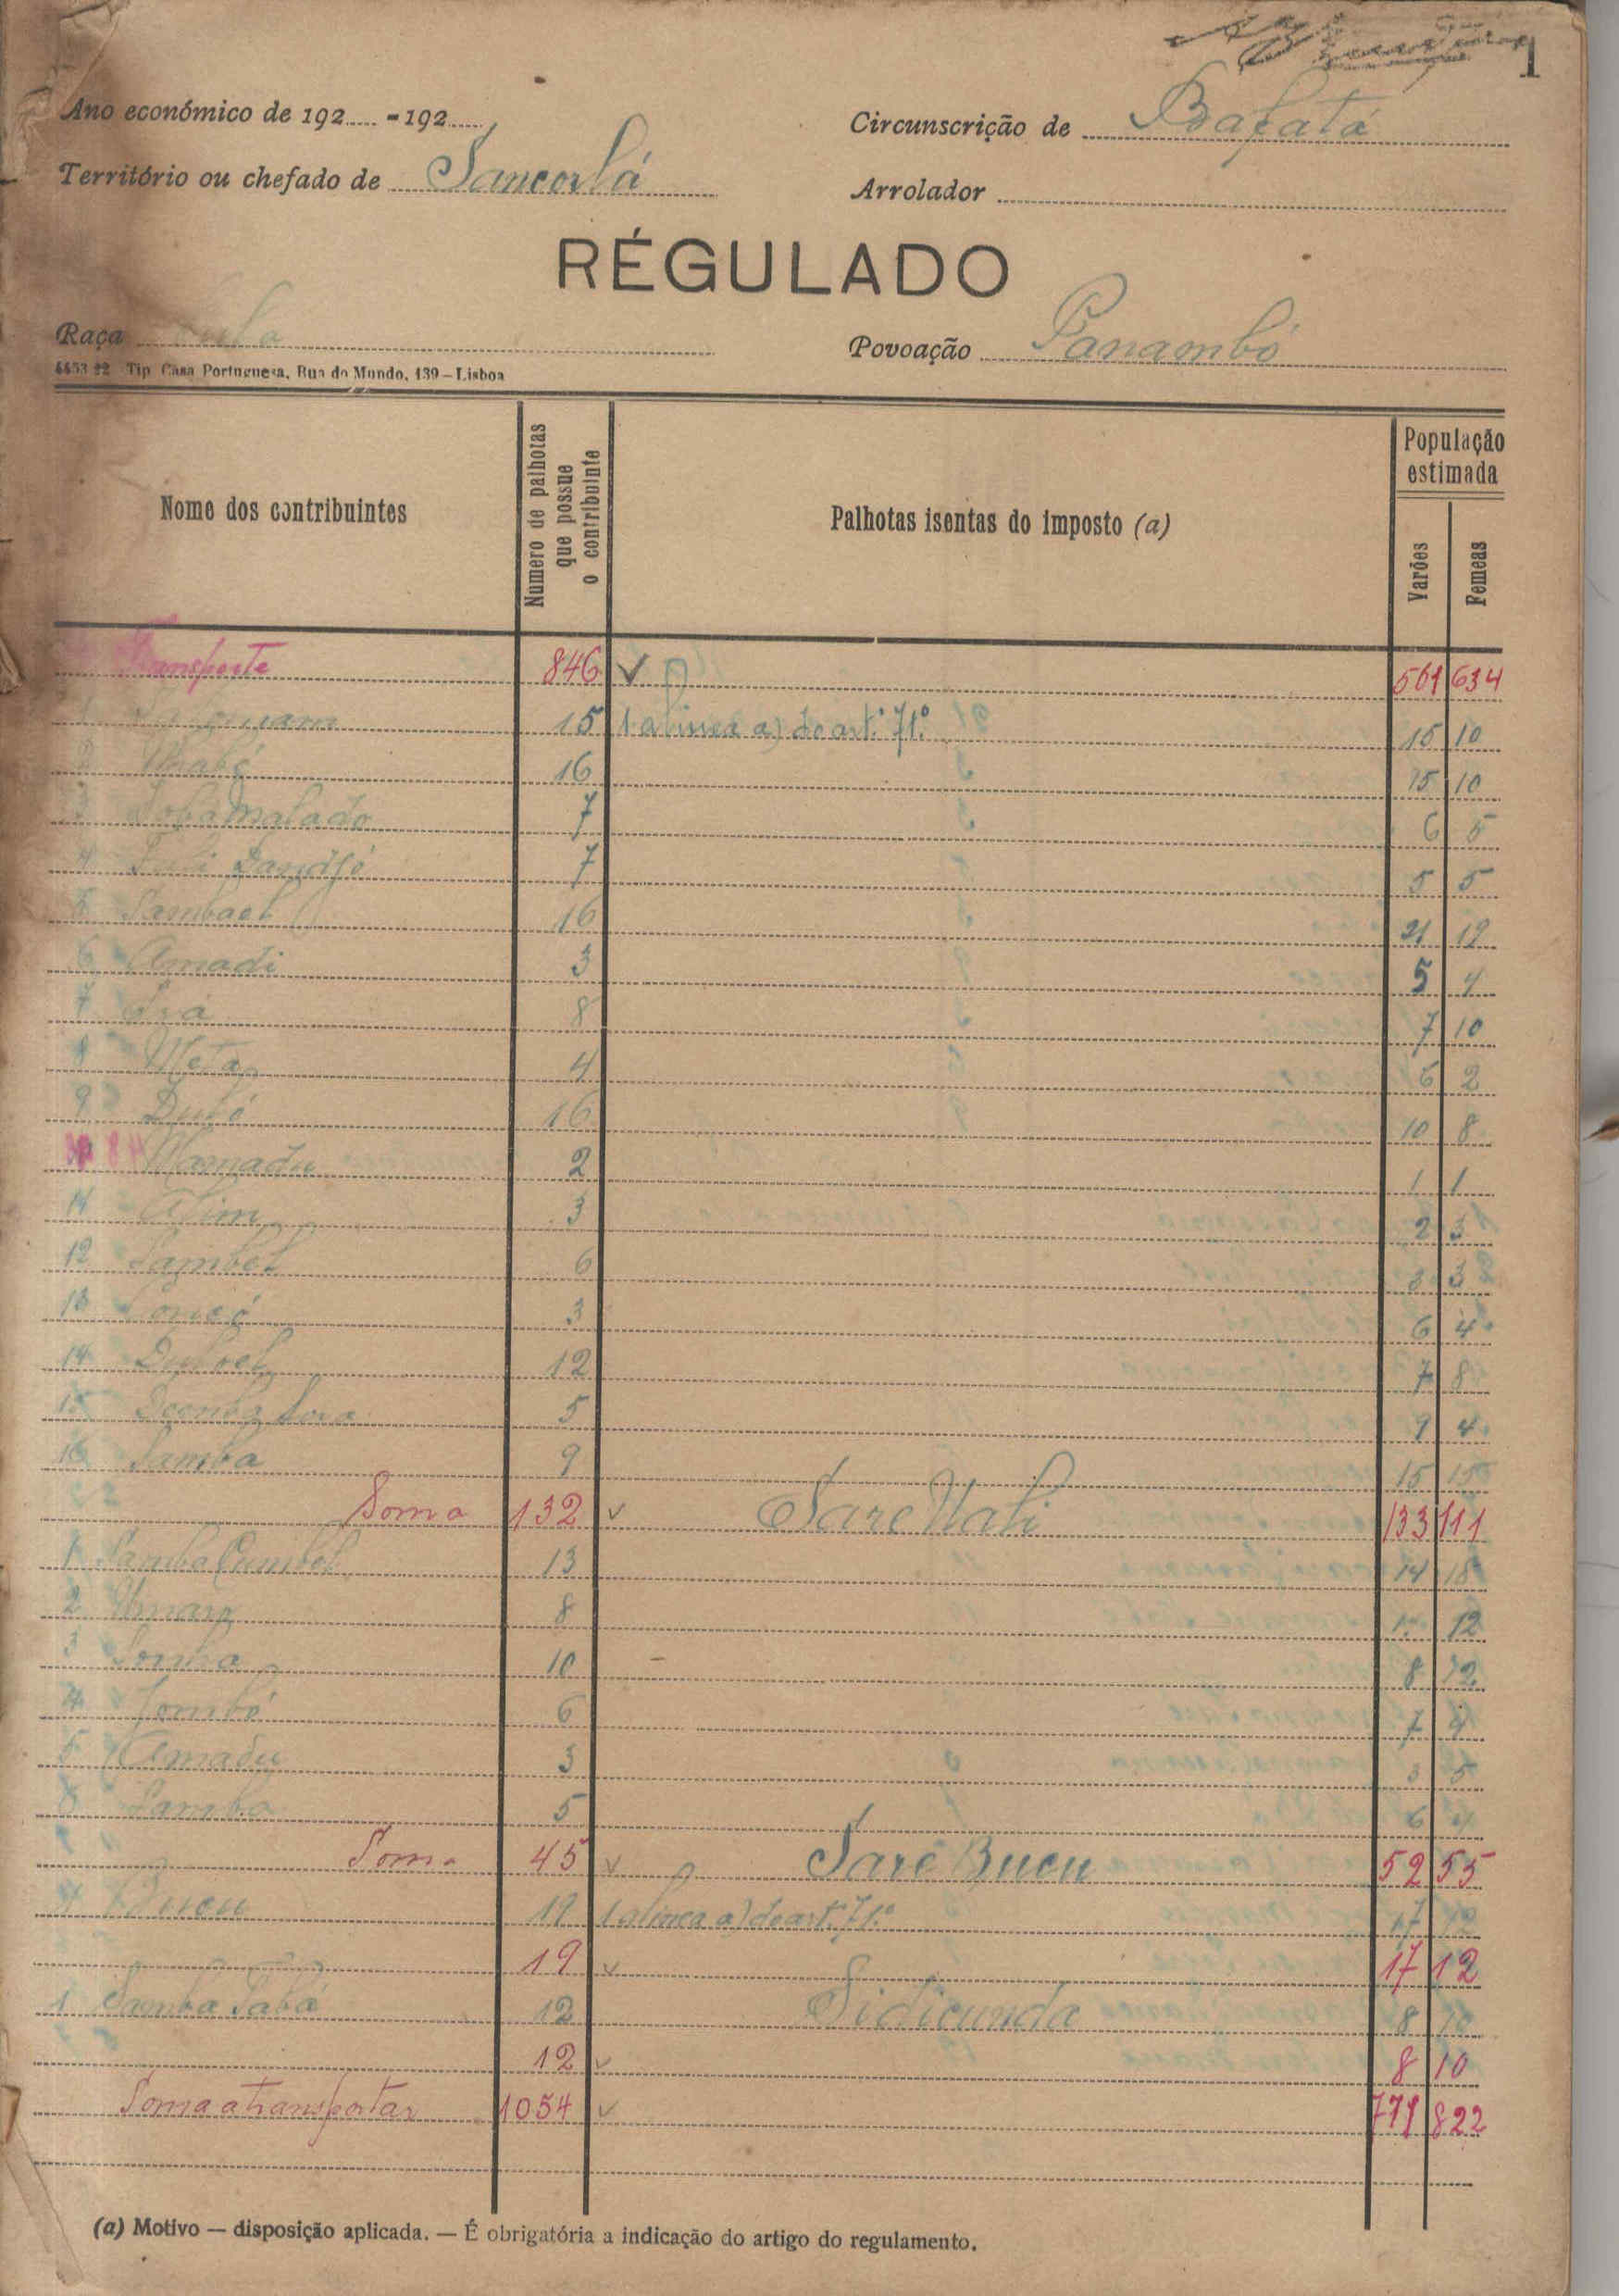 1
Ano económico de 192..... - 192.....
Circunscrição de Bafatá
Território ou chefado de Sancorlá
Arrolador
RÉGULADO
Raça Fula
Povoação Panambó
Tip. Casa Portuguesa, Rua do Mundo, 139 – Lisboa
Nome dos contribuintes
Numero de palhotas que possue o contribuinte
Palhotas isentas do imposto (a)
População estimada
Varões
Femeas
Transporte 846 ✓ 561 634
1 15 1 alinea a) do art.º 71.º 15 10
2 16 15 10
3 7 6 5
4 7 5 5
5 Sambael 16 21 12
6 Amadi 3 5 4
7 8 7 10
8 Meta 4 6 2
9 16 10 8
10 Mamadu 2 1 1
11 Alim 3 2 3
12 Sambel 6 3 3
13 3 6 4
14 12 7 8
15 5 9 4
16 Samba 9 15 15
Soma 132 ✓ Sare Uali 133 111
1 Samba Cumbel 13 14 18
2 Umaro 8 12
3 10 8 12
4 Sombó 6 7 4
5 Amadu 3 3 5
Samba 5 6 4
Soma 45 ✓ Sare Bucu 52 55
Bucu 19 1 alinea a) do art.º 71.º 17 12
19 ✓ 17 12
1 Samba Sabá 12 Sidicunda 8 10
12 ✓ 8 10
Soma a transportar 1054 ✓ 771 822
(a) Motivo — disposição aplicada. — É obrigatória a indicação do artigo do regulamento.